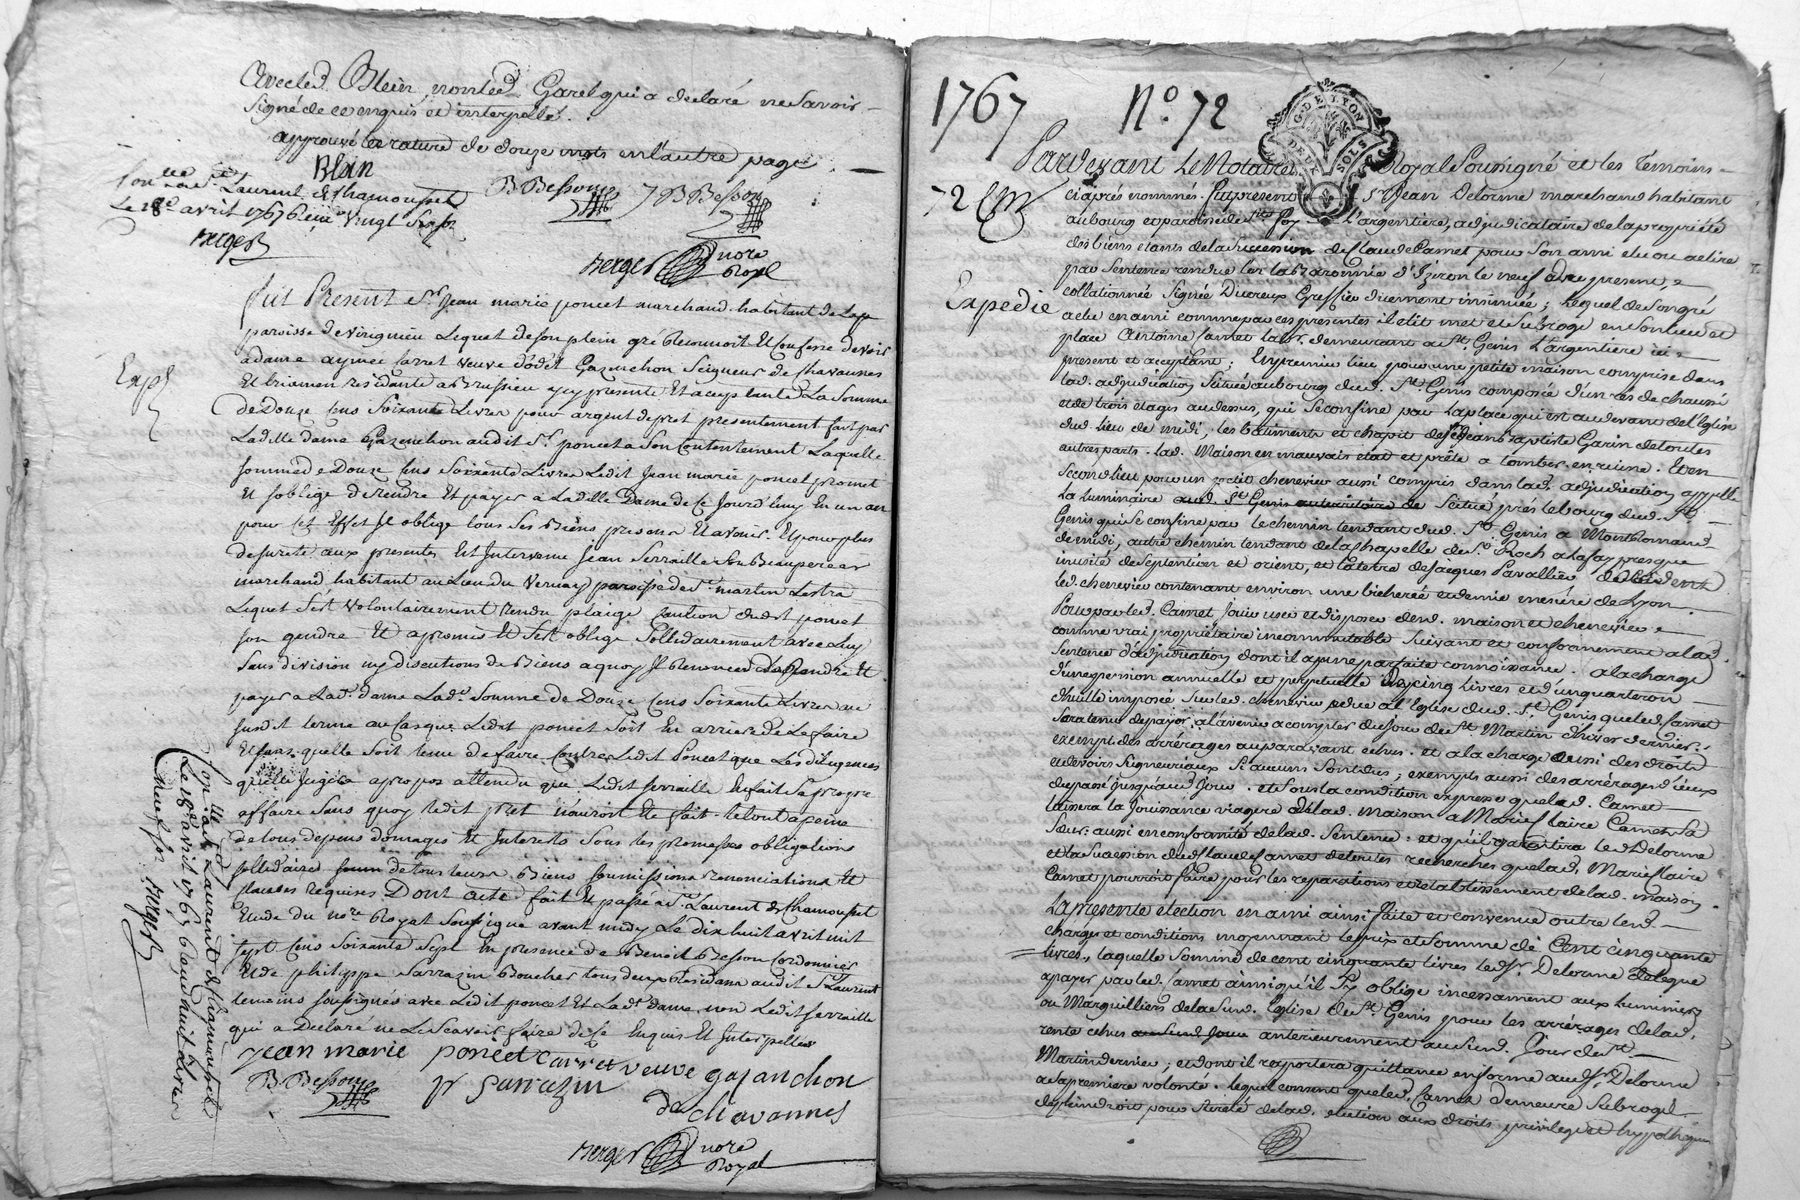 Avecled. Blein nonled. Garel qui a declaré ne savoir
signé de ce enquis et interpellé.
approuvé la rature de douze mots en l'autre page
Blein
Laurent de Chamousset
Le 18e avril 1767
vingt
BBesson JBBesson
Berger
Berger nore
Royal
fut Present Sr. Jean marie poncet marchand habitant de la
paroisse de virigneu Lequel de son plein gré Reconnoit Et Confesse devoir
a dame aymee Carret veuve d'odet Gazanchon Seigneur de Chavannes
Expé
Et briamen residante a Brussieu icy presente Et acceptante La Somme
de Douze Cens Soixante Livres pour argent de pret presentement fait par
Laditte dame Gazanchon audit Sr. poncet a son Contentement Laquelle
somme de Douze Cens Soixante Livres Ledit Jean marie poncet promet
Et s'oblige de rendre Et payer a Laditte Dame de Ce Jourd'huy En un an
pour Cet Effet Il oblige tous ses Biens presens Et avenir. Et pour plus
de sureté aux presentes Est Intervenu Jean Serraille son Beaupere
marchand habitant au Lieu du Vernay paroisse de St. martin Lestra
Lequel s'est volontairement Rendu plaige Caution dudit poncet
son gendre Et a promis Et s'est obligé Sollidairement avec Luy
sans division ny discutions de Biens a quoy Il Renonce de Rendre Et
payer a Lade. dame Lade. Somme de Douze Cens Soixante Livres au
susdit terme au Cas que Ledit poncet Soit En arriere de Le faire
Et sans quelle soit tenue de faire Contre Ledit Poncet que Les diligences
quelle Jugera apropos attendu que Ledit Serraille En fait Sa propre
affaire Sans quoy Ledit pret n'auroit Eté fait. Le tout a peine
de tous depens domages Et Interets Sous Les promesses obligations
sollidaire de tous leurs Biens soumissions renonciations Et
clauses requises Dont acte fait Et passé a St. Laurent de Chamousset
Etude du nore. Royal Soussigné avant midy Le dix huit avril mil
sept Cens Soixante Sept En presence de Benoit Besson Cordonnier
Et de philippe Sarrazin Boucher tous deux Residans audit St. Laurent
temoins soussignés avec Ledit poncet Et Lade. dame, non Ledit Serraille
qui a Declaré ne Le Scavoir faire de Ce Enquis Et Interpellé
Jean marie poncet Carret veuve gazanchon
BBesson p Sarrazin de Chavannes
Berger nore
Royal
Laurent de Chamousset
Le 18e avril 1767
Berger
1767 No. 72
G. DE LYON
DEUX SOLS
Pardevant Le Notaire Royal Soussigné et les Témoins
72
ciaprés nommés. Fut present Sr. Jean Delorme marchand habitant
au bourg et paroisse de Ste. foy L'argentiére, adjudicataire de la propriété
des biens etants de la Succession de Claude Carnet pour son ami elu ou aelire
par Sentence rendue en la Baronnie d'Izeron le neuf du present,
Expedié
collationnée Signée Ducreux Greffier duement insinuée; Lequel de Son gré
a elu en ami comme par ces presentes il elit met et Subroge en Son lieu et
place Antoine Carnet Labr. demeurant a St. Genis L'argentiére ici
present et acceptant; En premier lieu pour une petite maison comprise dans
lad. adjudication Scituée au bourg dud. St. Genis composée d'un rés de chaussé
et de trois etages au dessus, qui Se confine par la place qui est au devant de l'Eglise
dud. Lieu de midi, les bâtiments et chapit de Jean baptiste Garin de toutes
autres parts. lad. Maison en mauvais etat et prête a tomber en ruine. Et en
Second lieu pour un petit chenevier aussi compris dans lad. adjudication appellé
La luminaire aud. St. Genis au territoire de Scitué prés le bourg dud. St.
Genis qui Se confine par le chemin tendant dud. St. Genis a Montromand
de midi, autre chemin tendant de la Chapelle de St. Roch a lafay presque
inusité de Septentrion et orient, et la terre de Jacques Pavallier d'occident
led. chenevier contenant environ une bicherée et demie mesure de Lyon.
Pour par led. Carnet Jouir user et disposer desd. maison et chenevier
comme vrai propriétaire incommutable Suivant et conformement a lad.
Sentence d'adjudication dont il a prine parfaite connoissance. a la charge
d'une pension annuelle et perpetuelle de cinq livres et d'un quarteron
d'huille imposée Sur led. chenevier et due a l'Eglise dud. St. Genis que led. Carnet
Sera tenu de payer a l'avenir a compter du Jour de St. Martin d'hiver dernier
exempt des arrérages auparavant echus. et a la charge aussi des droits
et devoirs Seigneuriaux Si aucuns Sont dus; exempts aussi des arrérages d'iceux
du passé Jusqu'a ce Jour. et Sous la condition expresse que led. Carnet
laissera la Jouissance viagere de lad. maison a Marie Claire Carnet Sa
Sœur aussi en conformité de lad. Sentence; et qu'il garantira led. Delorme
et la Succession dud. Claude Carnet de toutes recherches que lad. Marie Claire
Carnet pourroit faire pour les reparations et retablissement de lad. maison.
La presente election en ami ainsi faite et convenue outre lesd.
charges et conditions moyennant le prix et Somme de Cent cinquante
livres, laquelle Somme de cent cinquante livres led. Sr. Delorme delegue
a payer par led. Carnet ainsi qu'il S'y oblige incessament aux Luminiers
ou Marguilliers de lasusd. Eglise de St. Genis pour les arrérages de lad.
rente echus anterieurement ausud. Jour de St.
Martin dernier; et dont il raportera quittance en forme aud. Sr. Delorme
a sa premiere volonté. lequel consent que led. Carnet demeure Subrogé
de plein droit pour Sureté de lad. election aux droits privilege et hypotheques